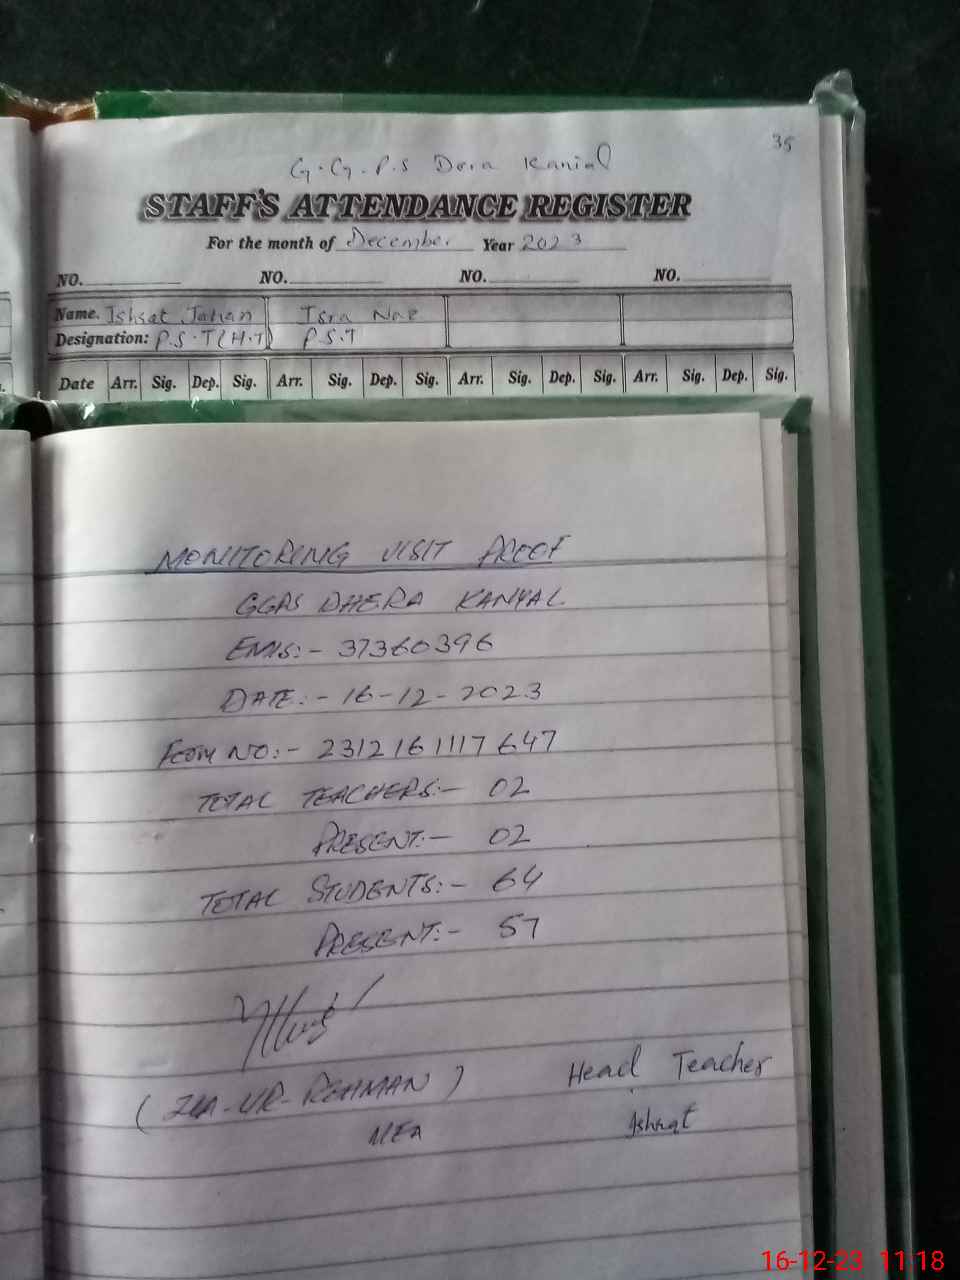 35
G.G.P.S Dora Kanial
STAFF'S ATTENDANCE REGISTER
For the month of December Year 2023
NO. NO. NO. NO.
Name. Ishrat Jahan Isra Naz
Designation: P.S.T (H.T) P.S.T
Date Arr. Sig. Dep. Sig. Arr. Sig. Dep. Sig. Arr. Sig. Dep. Sig. Arr. Sig. Dep. Sig.
MONITORING VISIT PROOF
GGPS DHERA KANYAL
EMIS:- 37360396
DATE:- 16-12-2023
FORM NO:- 2312161117647
TOTAL TEACHERS:- 02
PRESENT:- 02
TOTAL STUDENTS:- 64
PRESENT:- 57
(ZIA-UR-REHMAN) Head Teacher
MEA Ishrat
16-12-23 11:18